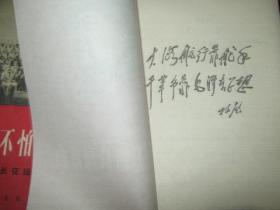 大海航行靠舵手
干革命靠毛泽东思想
林彪
不怕
长征组